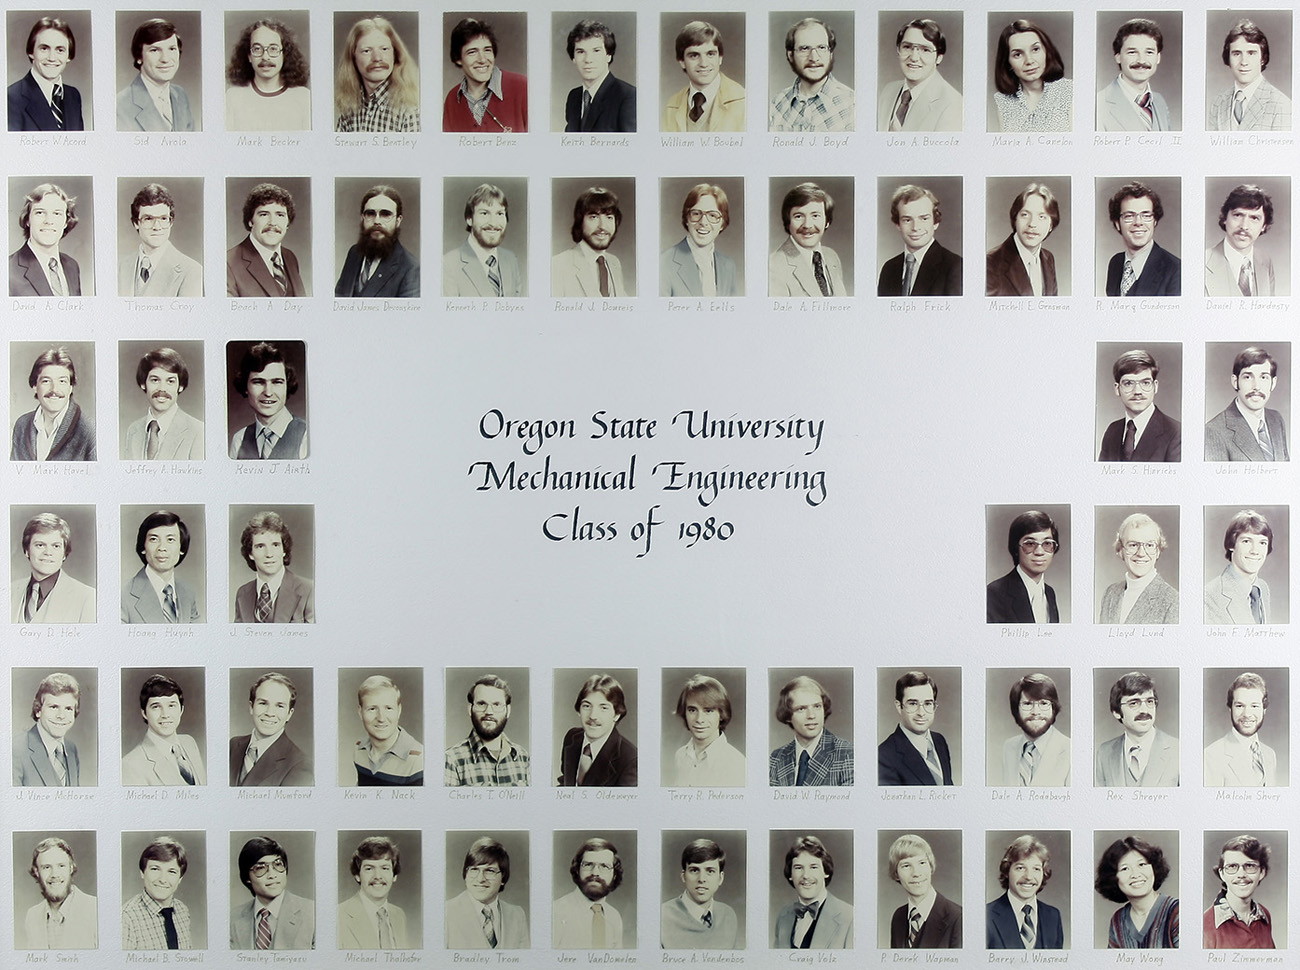 Robert W. Acord Sid Arola Mark Becker Stewart S. Beatley Robert Benz Keith Bernards William W. Boubel Ronald J. Boyd Jon A. Buccola Maria A. Canelon Robert P. Cecil II William Christensen
David A. Clark Thomas Croy Beach A. Day David James Kenneth P. Dobyns Ronald J. Downers Peter A. Eells Dale A. Fillmore Ralph Frick Mitchell E. R. Marq Gunderson Daniel R. Hardesty
V. Mark Havel Jeffrey A. Hawkins Kevin J. Airth Mark S. Hinricks John Holbers
Oregon State University
Mechanical Engineering
Class of 1980
Gary D. Hole Hoang Huynh J. Steven James Phillip Lee Lloyd Lund John F. Matthew
J. Vince McHorse Michael D. Miles Michael Mumford Kevin K. Nack Charles T. O'Neill Neal S. Oldemeyer Terry R. Pederson David W. Raymond Jonathan L. Ricket Dale A. Rodabaugh Rex Shroyer Malcolm Shuey
Mark Smith Michael B. Stowell Stanley Tamiyasu Michael Thalhofer Bradley Trom Jere VanDomelen Bruce A. Vandenbos Craig Volz P. Derek Wapman Barry J. Winstead May Wong Paul Zimmerman